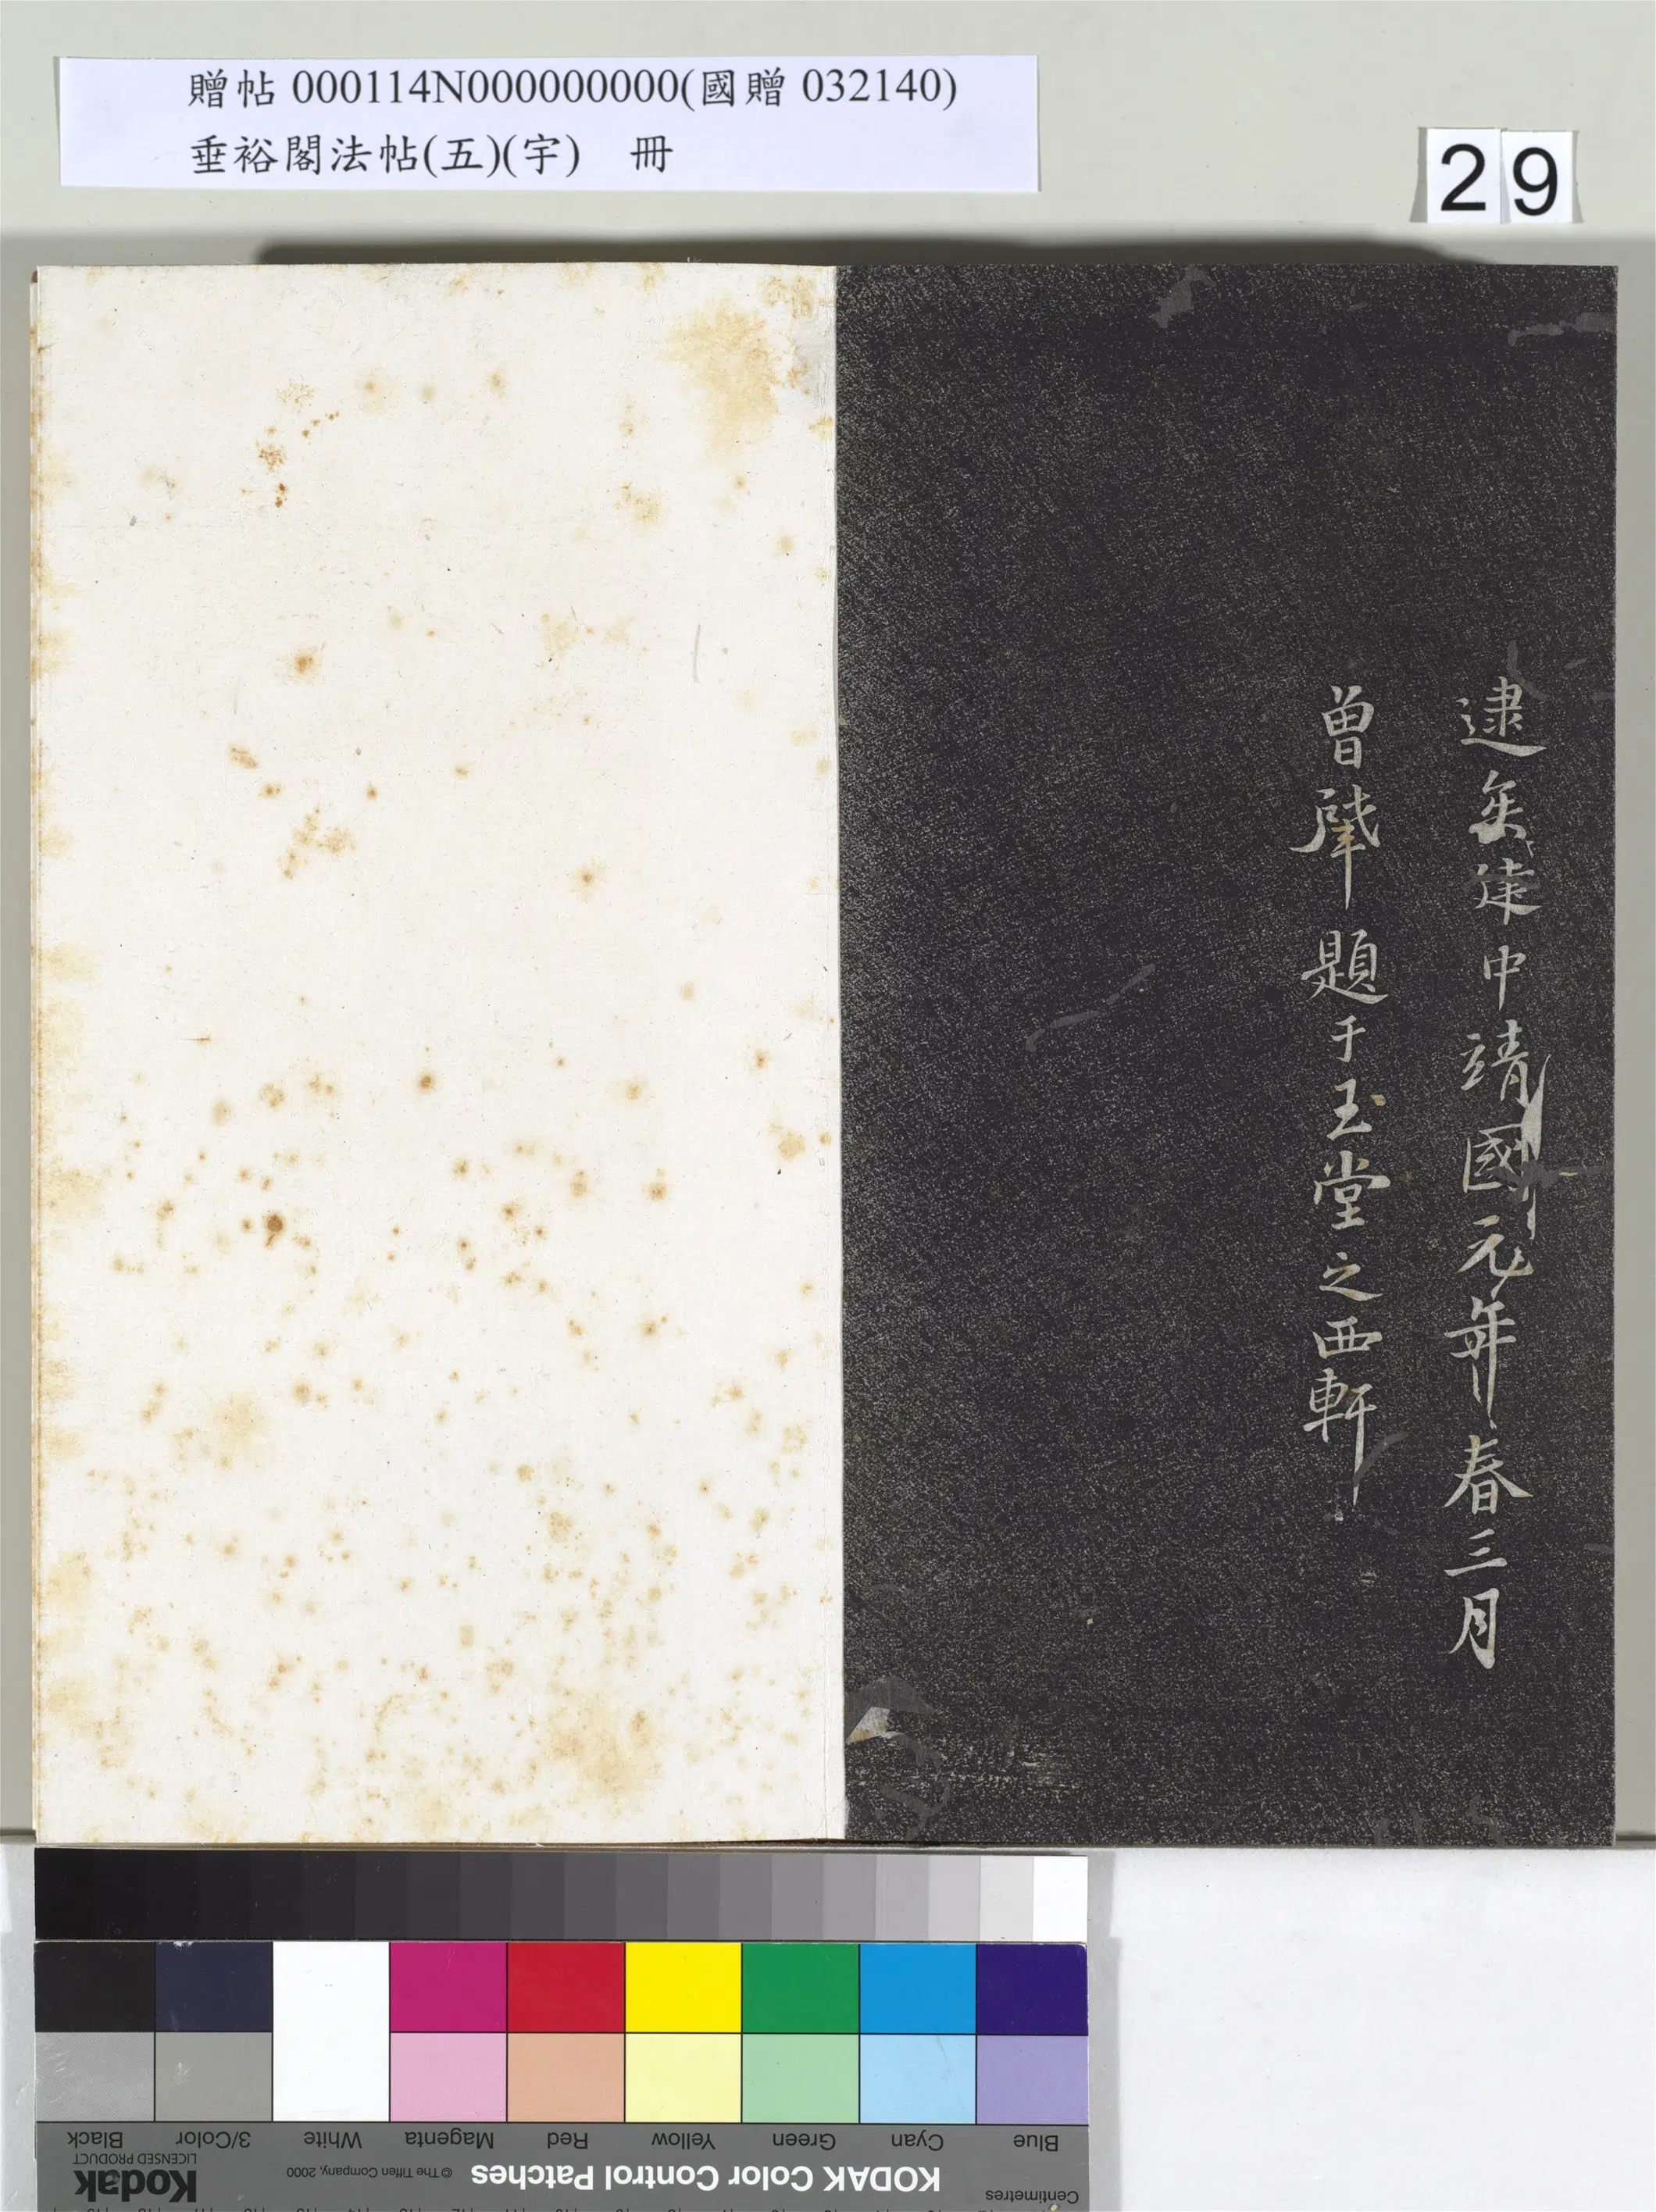 贈帖 000114N000000000(國贈 032140)
垂裕閣法帖(五)(宇) 冊
29
逮矣建中靖國元年春三月
曾肇題于玉堂之西軒
Blue Cyan Green Yellow Red Magenta White 3/Color Black
Centimetres KODAK Color Control Patches © The Tiffen Company, 2000 Kodak LICENSED PRODUCT